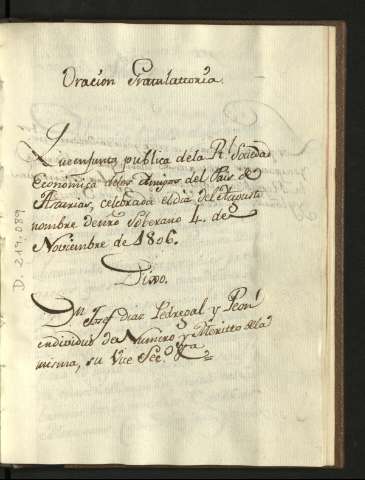 Oracion Gratulattoria.
Que en junta publica de la Rl. Sociedad
Económica delos Amigos del Pais de
Asturias, celebrada el dia del Augusto
nombre de nro. Soberano 4. de
Noviembre de 1806.
Dixo.
Dn. Josef Diaz Pedregal y Peon
individuo de Numero y Meritto de la
misma, su Vice Seco.
D-219.089